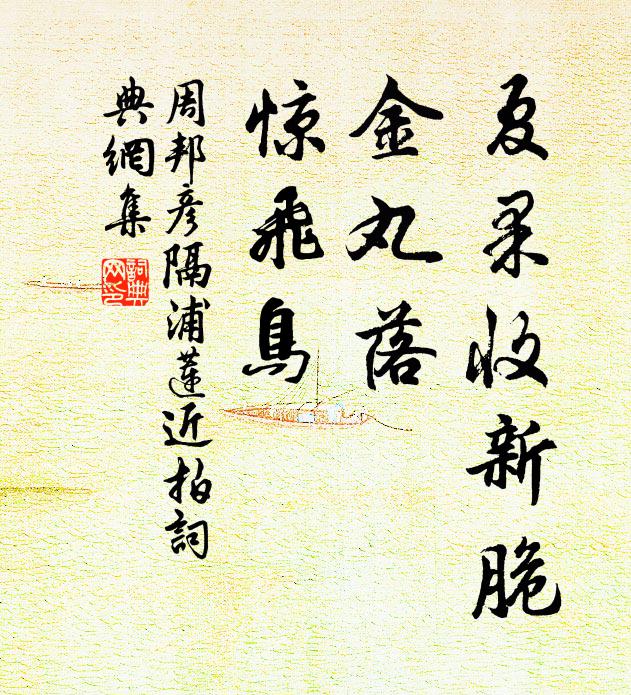 夏果收新脆
金丸落
惊飛鳥
周邦彦隔浦蓮近拍詞
典網集
詞典
网印